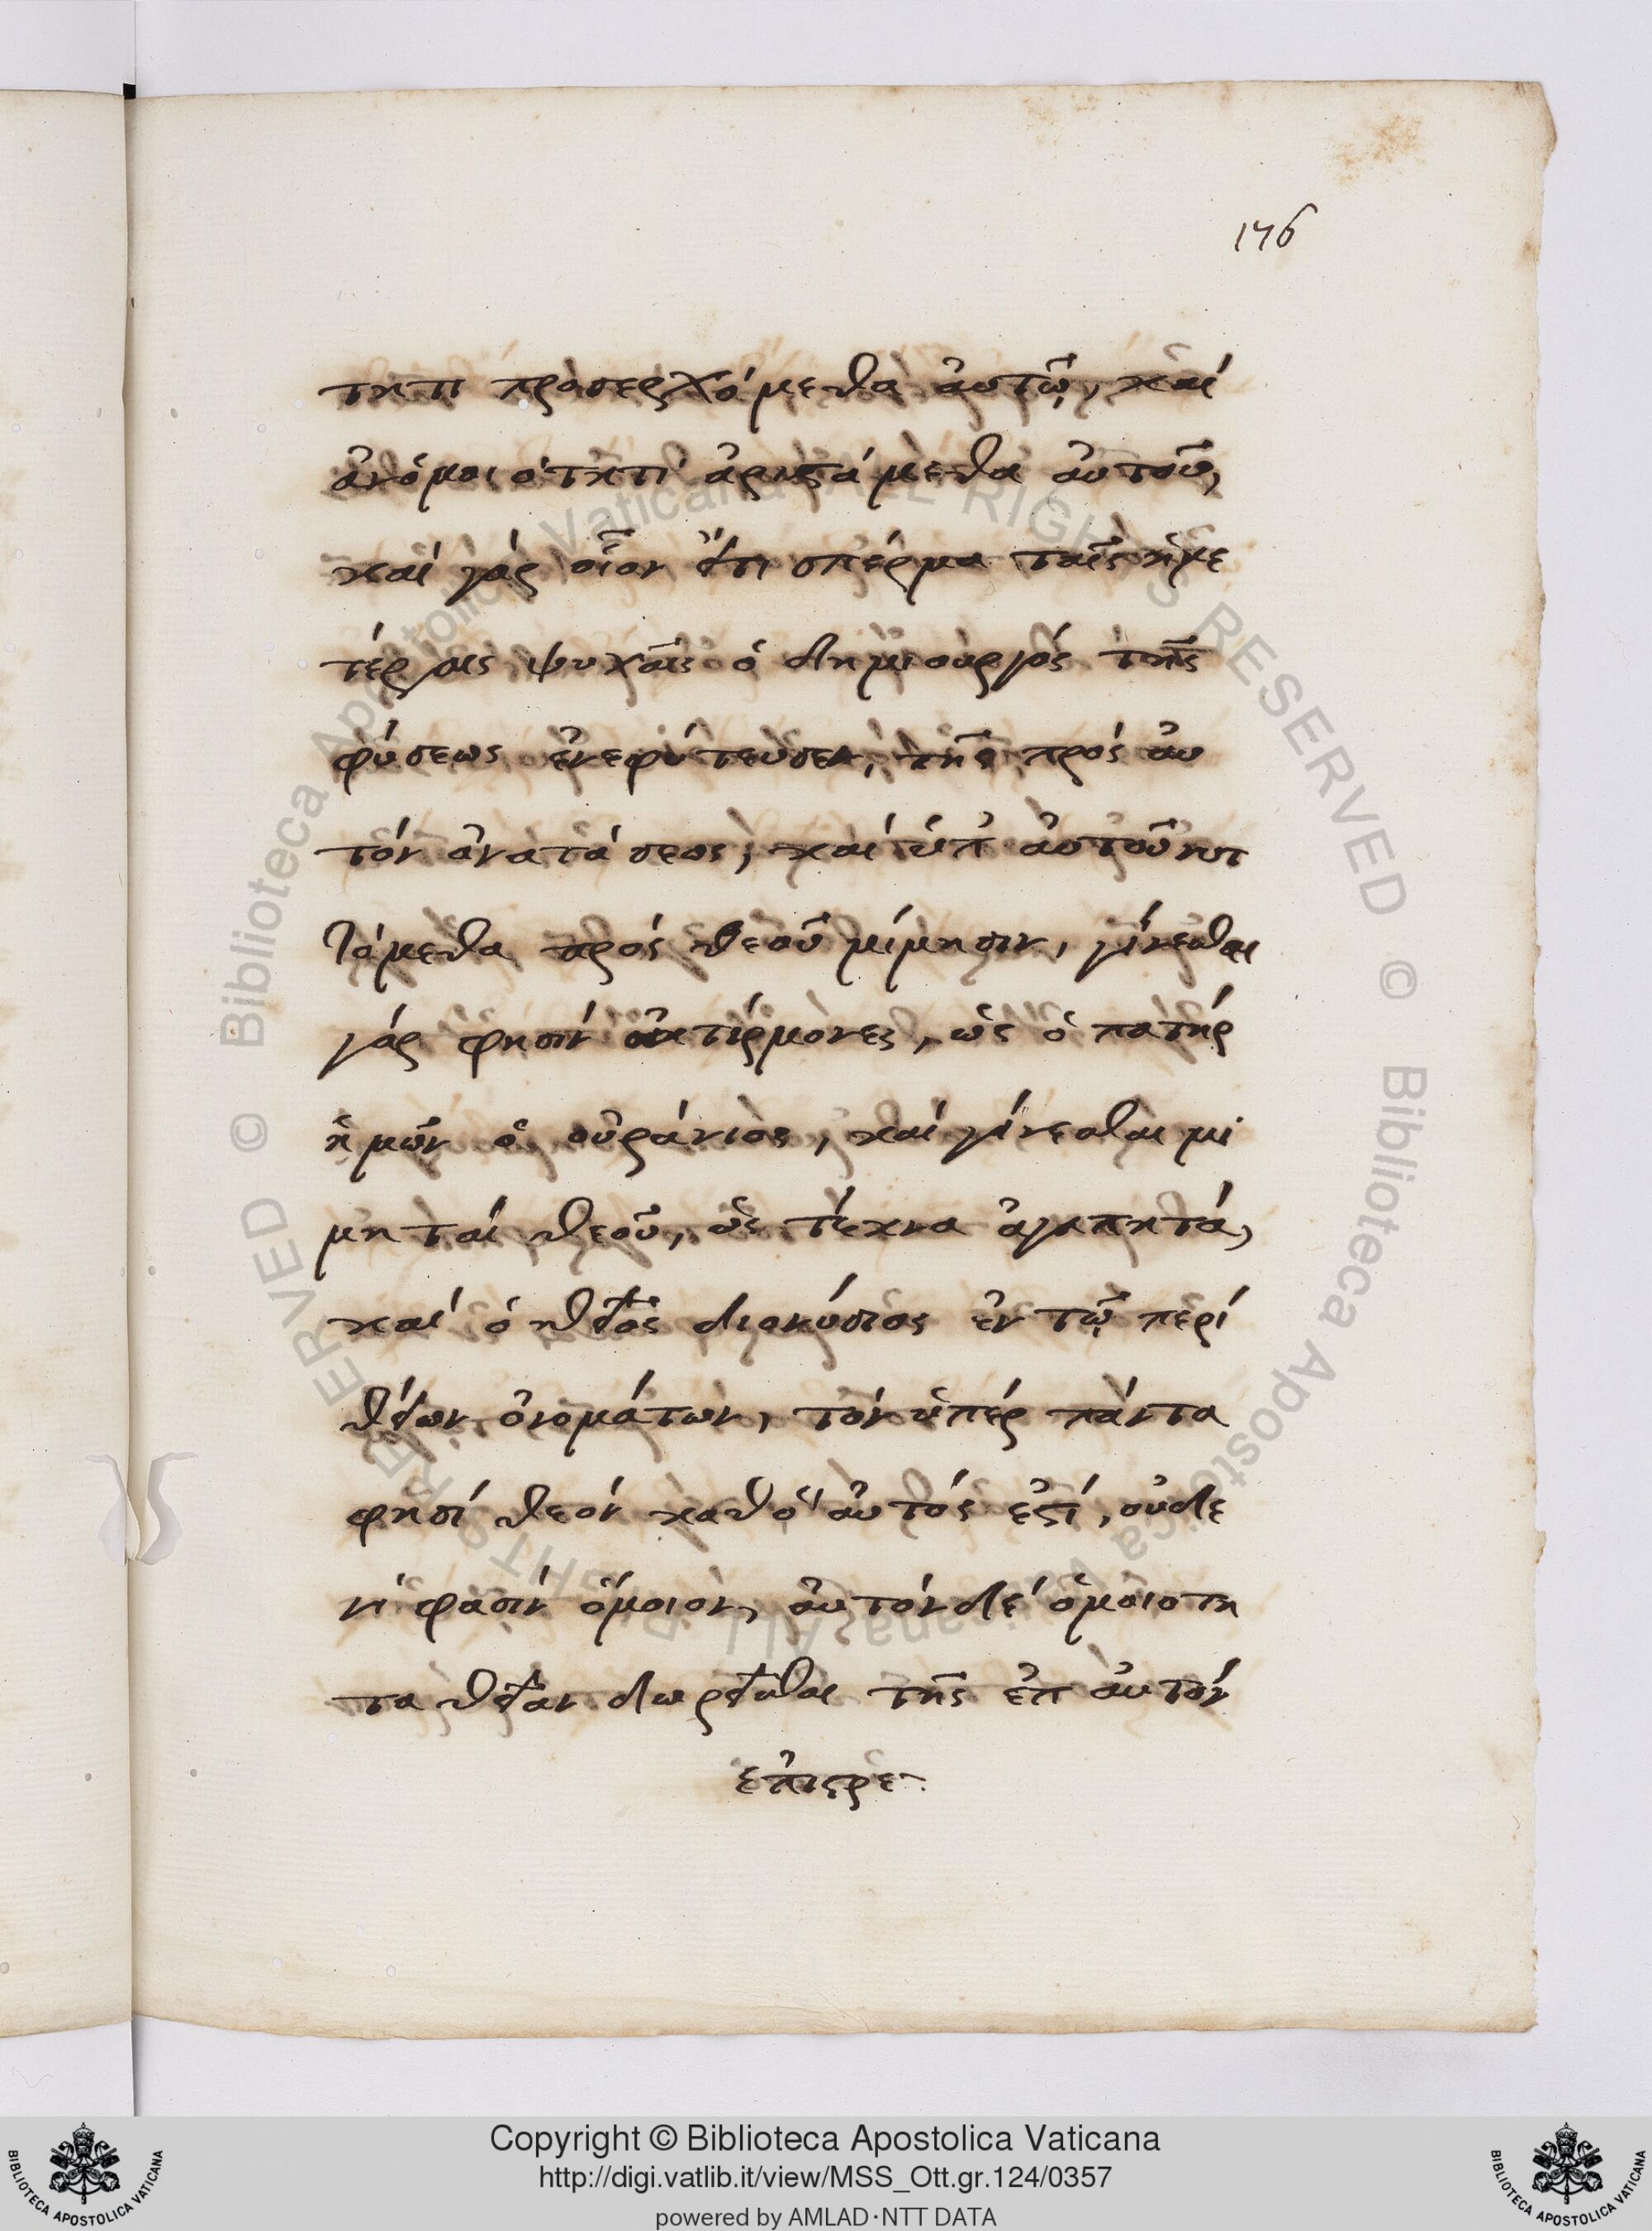 176
τητι προσερχόμεθα αὐτῷ, καί
ἀνομοιότητι ἀφιστάμεθα αὐτοῦ,
καί γάρ οἷόν τι σπέρμα ταῖς ἡμε
τέραις ψυχαῖς ὁ δημιουργός τῆς
φύσεως ἐνεφύτευσεν, τῆς πρός αὐ
τόν ἀνατάσεως, καί ὑπ αὐτοῦ
πρός θεοῦ μίμησιν, γίνεσθαι
γάρ φησίν οἰκτίρμονες, ὡς ὁ πατήρ
ἡμῶν ὁ οὐράνιος, καί γίνεσθαι μι
μηταί θεοῦ, ὡς τέκνα ἀγαπητά,
καί ὁ θεῖος διονύσιος ἐν τῷ περί
θείων ὀνομάτων, τόν ὑπέρ πάντα
φησί θεόν καθό αὐτός ἐστί, οὐδε
νί φασίν ὅμοιον, αὐτόν δέ ὁμοιότη
τα θείαν δωρεῖσθαι τῆς ἐπ αὐτόν
ἐπιστρε
Copyright © Biblioteca Apostolica Vaticana
http://digi.vatlib.it/view/MSS_Ott.gr.124/0357
powered by AMLAD·NTT DATA
BIBLIOTECA APOSTOLICA VATICANA
BIBLIOTECA APOSTOLICA VATICANA